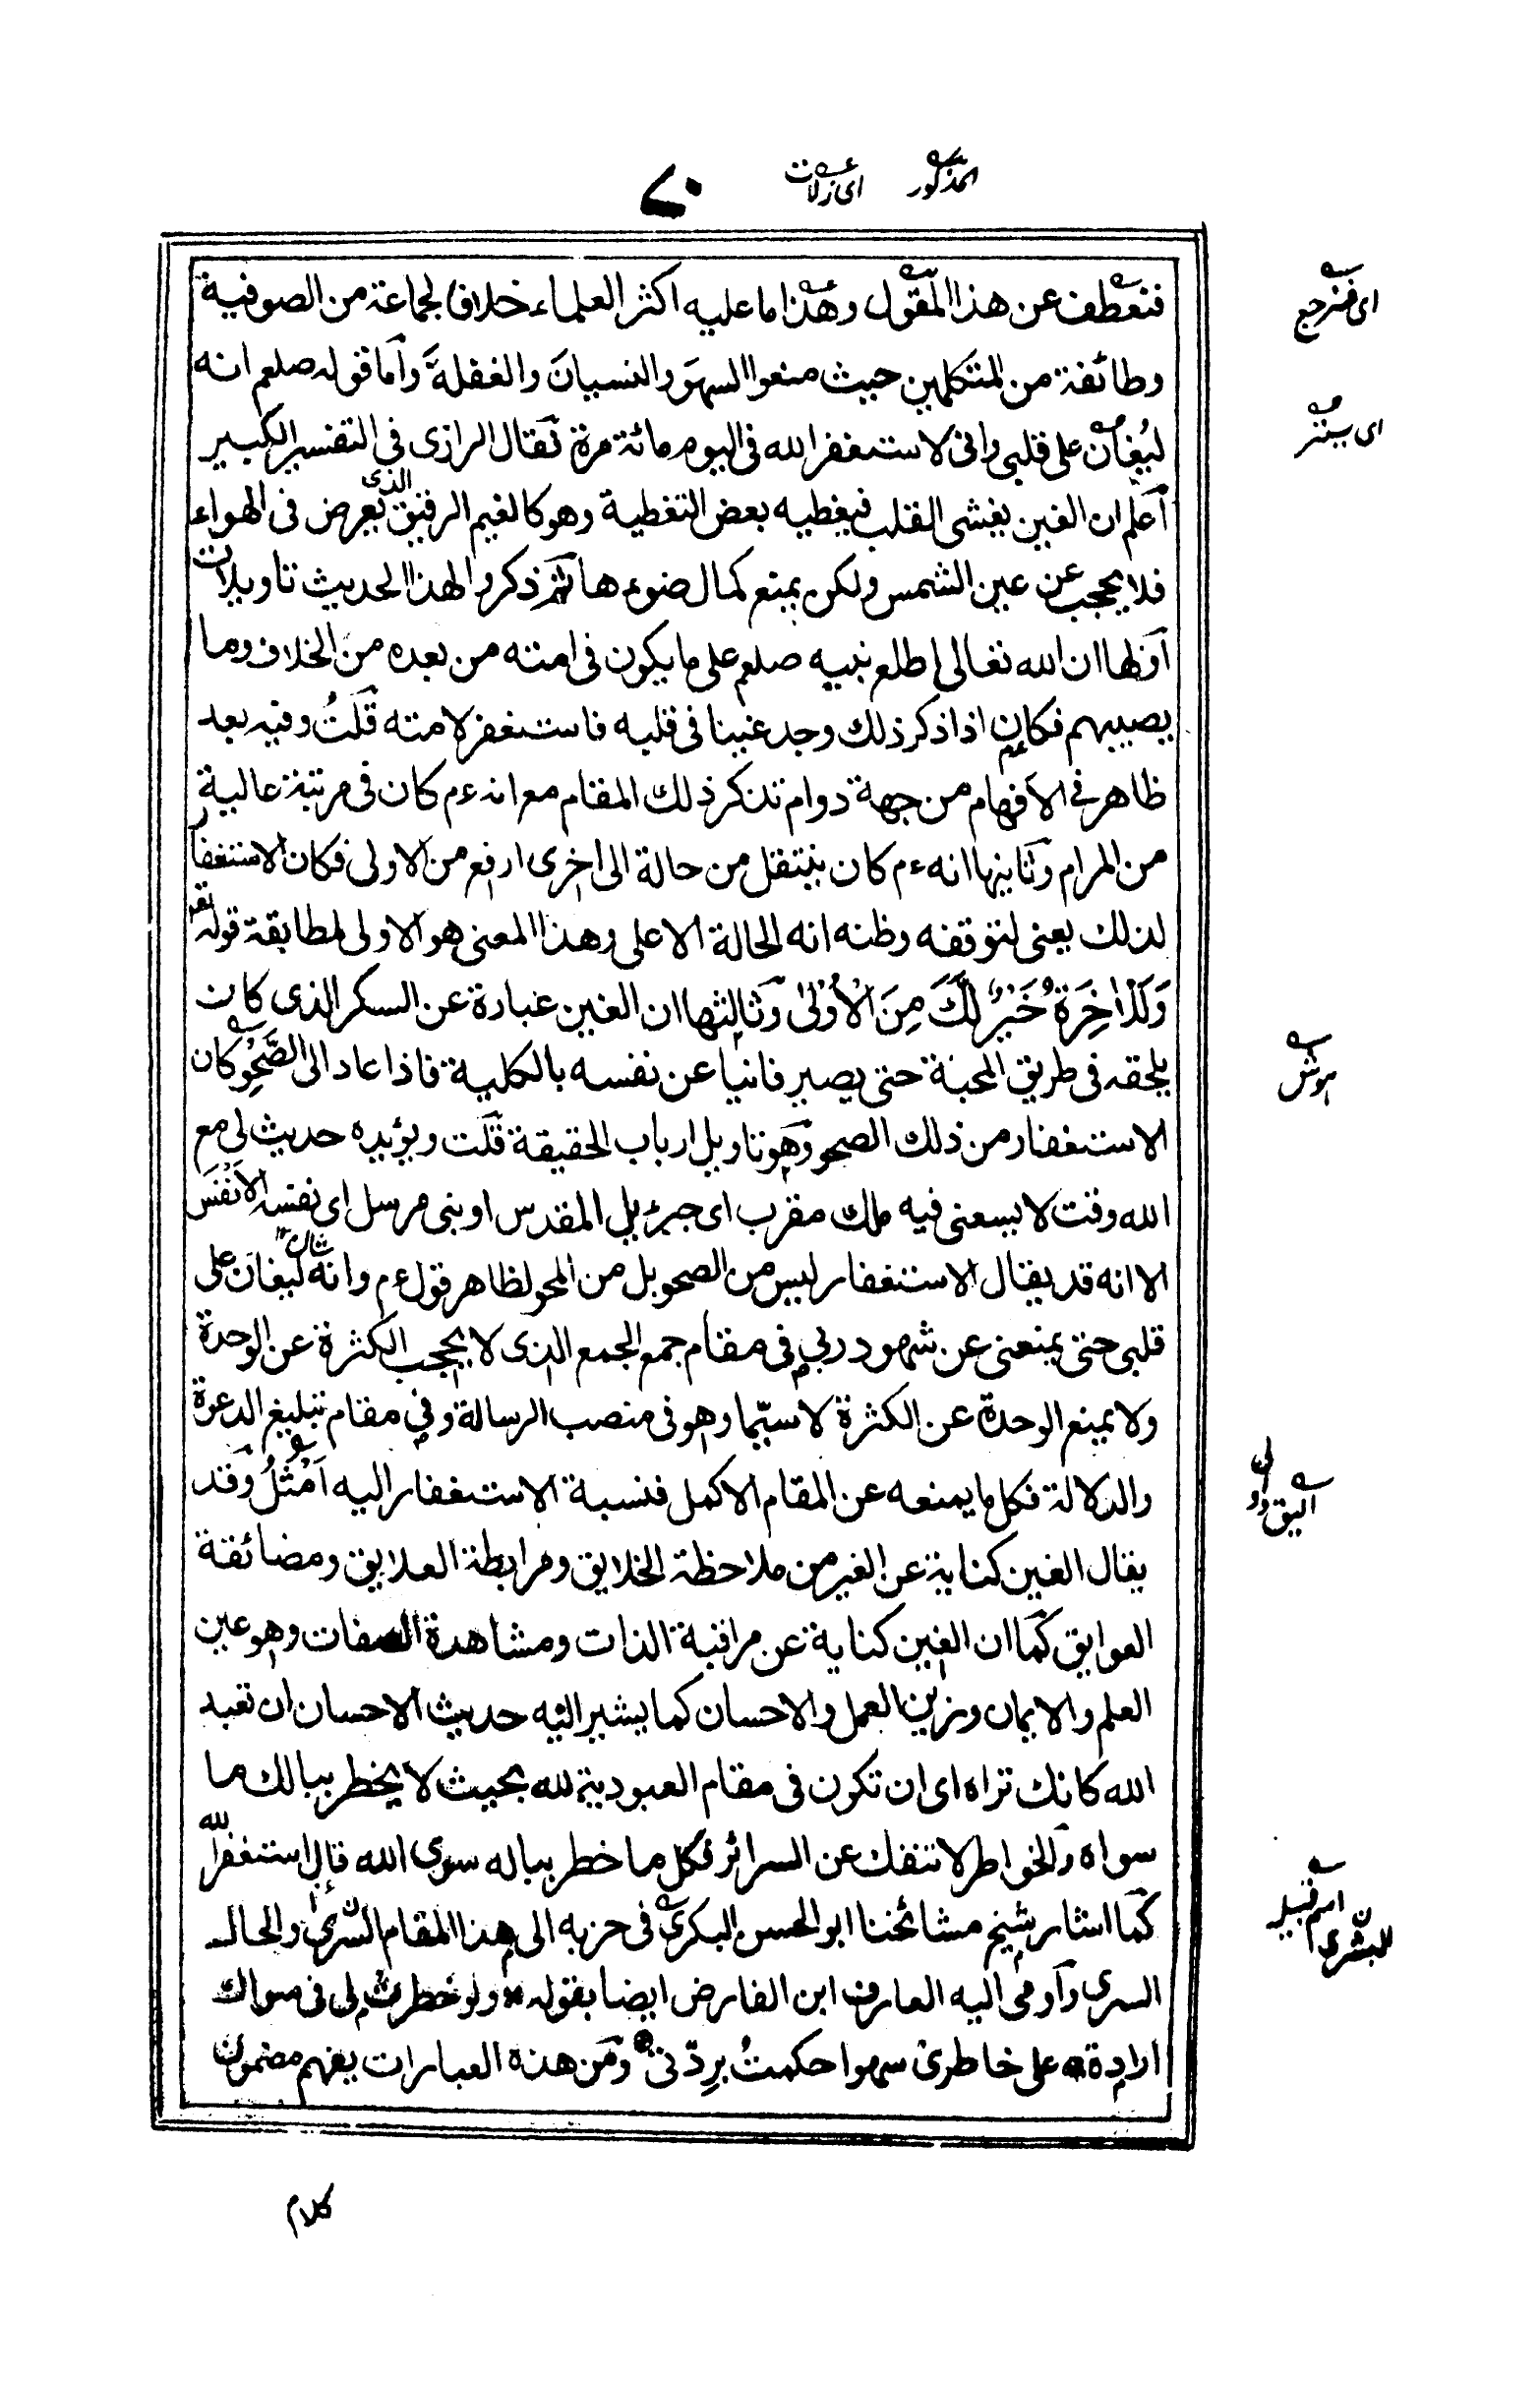 المذكور
اى زلات
٧٠
فنعطف عن هذا المقول وهذا ما عليه اكثر العلماء خلافا لجماعة من الصوفية
اى فنرجع
وطائفة من المتكلمين حيث منعوا السهو والنسيان والغفلة وأما قوله صلعم انه
ليُغان على قلبى وانى لاستغفر الله فى اليوم مائة مرة فقال الرازى فى التفسير الكبير
اى يستر
أعلم ان الغين يغشى القلب فيغطيه بعض التغطية وهو كالغيم الرقيق الذى يعرض فى الهواء
فلا يحجب عن عين الشمس ولكن يمنع كمال ضوءها ثم ذكروا لهذا الحديث تاويلات
اولها ان الله تعالى اطلع نبيه صلعم على ما يكون فى امته من بعده من الخلاف وما
يصيبهم فكان اذا ذكر ذلك وجد غينا فى قلبه فاستغفر لامته قلتُ وفيه بعد
ظاهر فى الافهام من جهة دوام تذكر ذلك المقام مع انه ءم كان فى مرتبة عالية
من المرام وثانيها انه ءم كان ينتقل من حالة الى اخرى ارفع من الاولى فكان الاستغفار
لذلك يعنى لتوقفه وظنه انه الحالة الاعلى وهذا المعنى هو الاولى لمطابقة قوله تع
وَلَلْاٰخِرَةُ خَيْرٌ لَكَ مِنَ الْأُوْلٰى وثالثها ان الغين عبارة عن السكر الذى كان
يلحقه فى طريق المحبة حتى يصير فانيا عن نفسه بالكلية فاذا عاد الى الصَّحْوِ كان
هوش
الاستغفار من ذلك الصحو وهو تاويل ارباب الحقيقة قلت ويؤيده حديث لى مع
الله وقت لا يسعنى فيه ملك مقرب اى جبرئيل المقدس او نبى مرسل اى نفسه الانفس
الا انه قد يقال الاستغفار ليس من الصحو بل من المحو لظاهر قول ءم وانه ليغان على
قلبى حتى يمنعنى عن شهود ربى فى مقام جمع الجمع الذى لا يحجب الكثرة عن الوحدة
ولا يمنع الوحدة عن الكثرة لا سيّما وهو فى منصب الرسالة وفى مقام تبليغ الدعوة
والدلالة فكل ما يمنعه عن المقام الاكمل فنسبة الاستغفار اليه اَمْثَلُ وقد
اليق
يقال الغين كناية عن الغير من ملاحظة الخلايق ومرابطة العلايق ومضائقة
العوايق كما ان الغين كناية عن مراقبة الذات ومشاهدة الصفات وهو عين
العلم والايمان وزين العمل والاحسان كما يشير اليه حديث الاحسان ان تعبد
الله كانك تراه اى ان تكون فى مقام العبودية لله بحيث لا يخطر ببالك ما
سواه والخواطر لا تنفك عن السرائر فكل ما خطر بباله سوى الله قال استغفر الله
كما اشار شيخ مشائخنا ابو الحسن البكرى فى حزبه الى هذا المقام السّرى والحال
السرى وأومى اليه العارف ابن الفارض ايضا بقوله ولو خطرت لى فى سواك
ارادة على خاطرى سهوا حكمتُ بردّتى ومن هذه العبارات يفهم مضمون
كلام